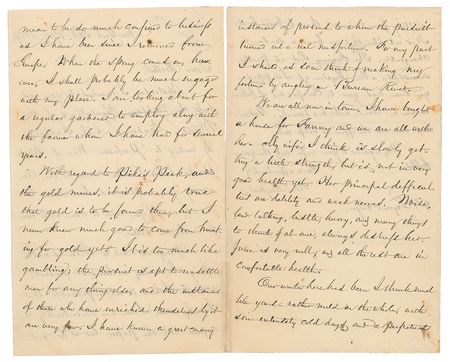 mean to be so much confined to business
as I have been since I returned from
Europe. When the spring comes my
I shall probably be much engaged
with my place. I am looking about for
a regular gardener to employ along with
the farmer whom I have had for several
years.
With regard to Pike's Peak, and
the gold mines, it is probably true
that gold is to be found there, but I
never knew much good to come from hunt
ing for gold yet. It is too much like
gambling; the pursuit is apt to unsettle
men for any thing else, and the instances
of those who have enriched themselves by it
are very few. I have known a great many
instances of persons to whom the pursuit
turned out a real misfortune. For my part
I should as soon think of making my
fortune by angling in Bureau River.
We are all now in town. I have bought
a house for Fanny and we are all with
her. My wife I think is slowly get-
ting a little strength, but is not in very
good health yet. Her principal difficul
ties are debility and weak nerves. Noise,
loud talking, bustle, hurry, and many things
to think of at once, always distress her.
Julia is very well, and all the rest are in
comfortable health.
Our winter here has been I think much
like yours - rather mild on the whole, with
some intensely cold days, and a perpetual